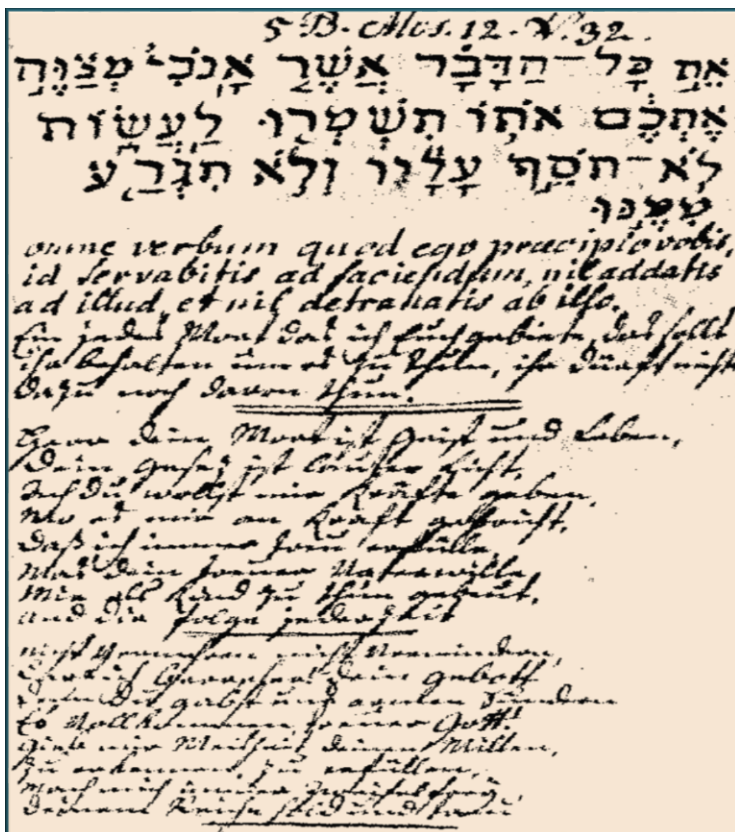 5 B. Mos. 12. V. 32.
אֵת כָּל־הַדָּבָר אֲשֶׁר אָנֹכִי מְצַוֶּה
אֶתְכֶם אֹתוֹ תִשְׁמְרוּ לַעֲשׂוֹת
לֹא־תֹסֵף עָלָיו וְלֹא תִגְרַע
מִמֶּנּוּ
omne verbum quod ego præcipio vobis,
id servabitis ad faciendum, nil addatis
ad illud, et nil detrahatis ab illo.
Ein jedes Wort das ich Euch gebiete, das sollt
ihr behalten um es zu thun, ihr dürft nichts
dazu noch davon thun.
Herr dein Wort ist Geist und Leben,
dein Gesez ist lauter Licht,
Ach du wollst mir Kräfte geben,
Wo es mir an Kraft gebricht,
daß ich immer treu erfülle,
Was dein treuer Vaterwille,
Mir als Kind zu thun gebeut,
und dir folge jederzeit
nicht vermehren nicht vermindern,
dein gebott
denn du gabst uns armen Sündern
Es Vollkommen treuer Gott!
Gieb mir Weisheit deinen Willen,
zu erkennen, zu erfüllen,
Mach mich immer
deinem Reiche und treu